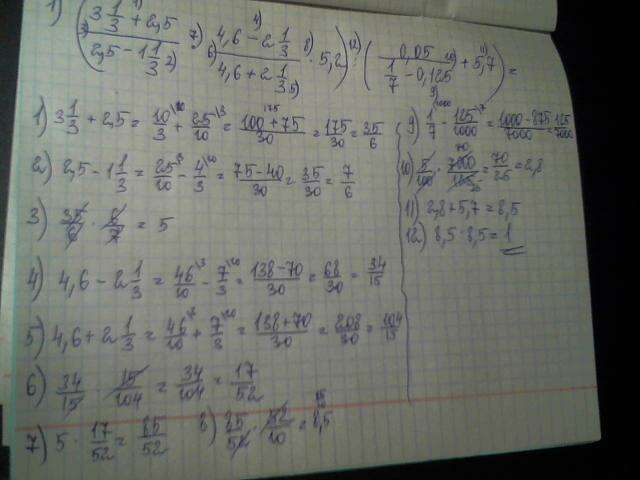 1) ( (3 1/3 + 2,5) / (2,5 - 1 1/3) · (4,6 - 2 1/3) / (4,6 + 2 1/3) · 5,2 ) : ( 0,05 / (1/7 - 0,125) + 5,7 ) =
1) 3 1/3 + 2,5 = 10/3 + 25/10 = (100 + 75)/30 = 175/30 = 35/6
2) 2,5 - 1 1/3 = 25/10 - 4/3 = (75 - 40)/30 = 35/30 = 7/6
3) 35/6 · 6/7 = 5
4) 4,6 - 2 1/3 = 46/10 - 7/3 = (138 - 70)/30 = 68/30 = 34/15
5) 4,6 + 2 1/3 = 46/10 + 7/3 = (138 + 70)/30 = 208/30 = 104/15
6) 34/15 · 15/104 = 34/104 = 17/52
7) 5 · 17/52 = 85/52
8) 85/52 · 52/10 = 8,5
9) 1/7 - 125/1000 = (1000 - 875)/7000 = 125/7000
10) 5/100 · 7000/125 = 70/25 = 2,8
11) 2,8 + 5,7 = 8,5
12) 8,5 : 8,5 = 1